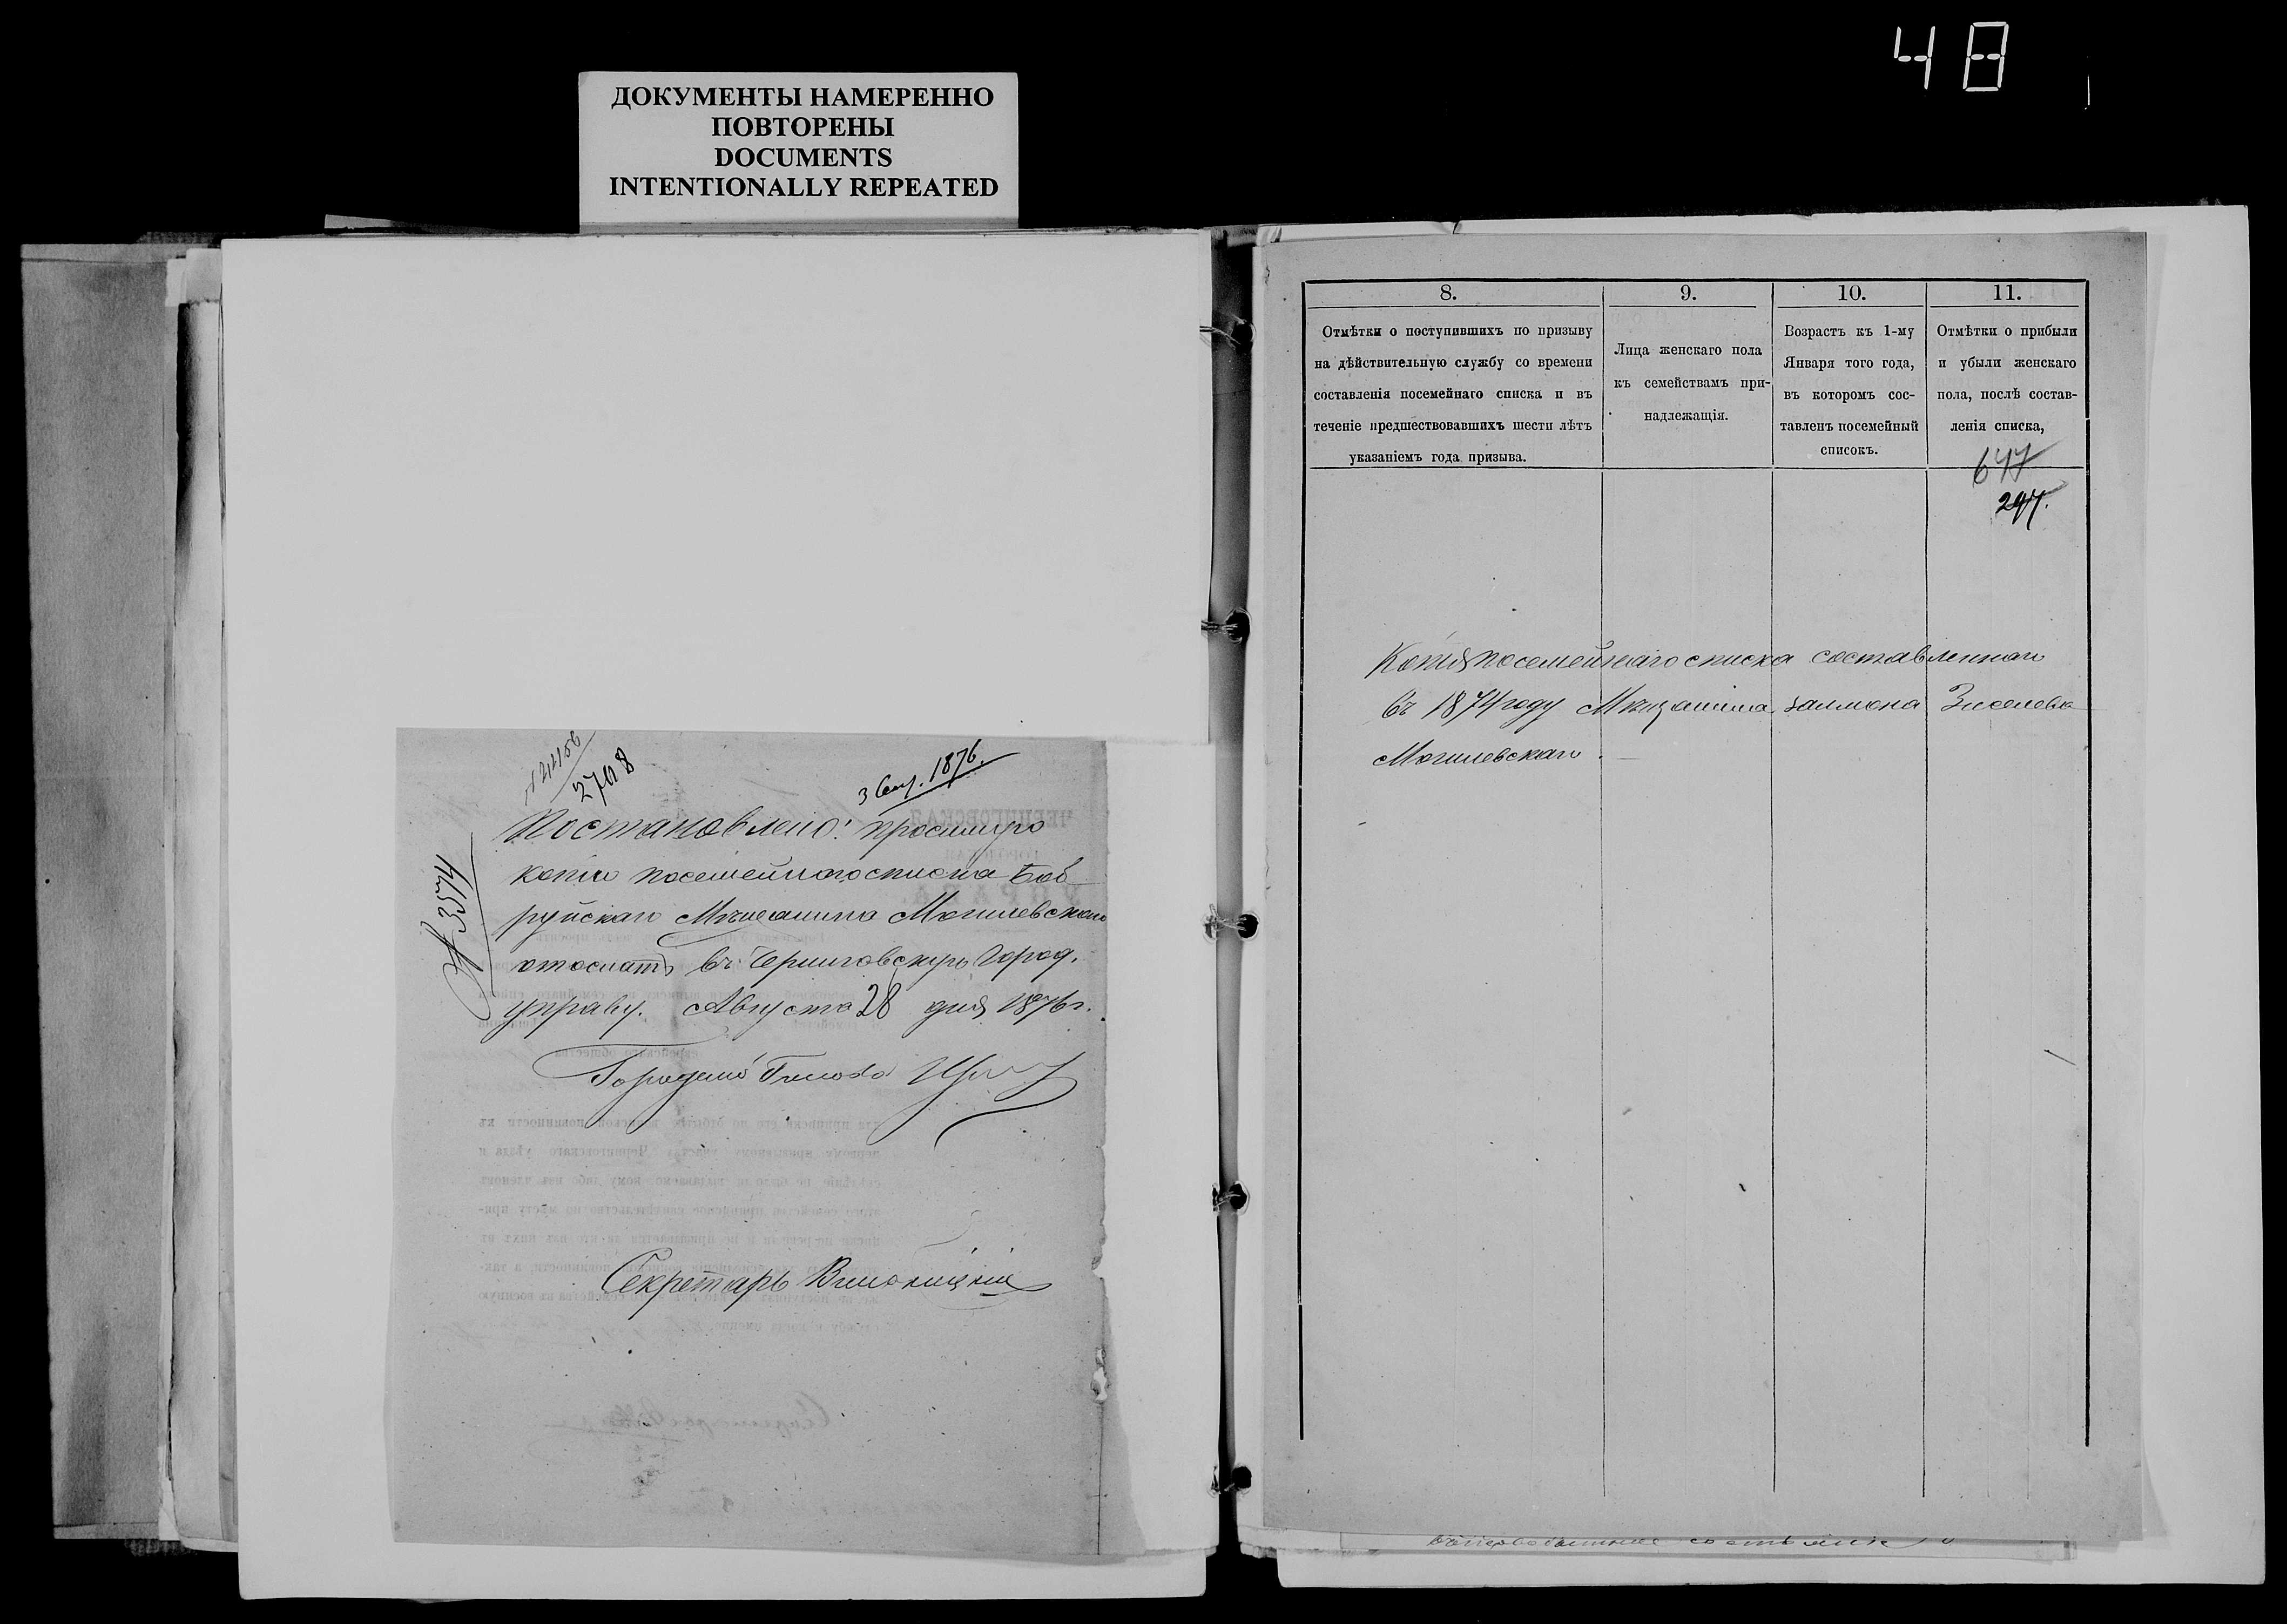 48
ДОКУМЕНТЫ НАМЕРЕННО
ПОВТОРЕНЫ
DOCUMENTS
INTENTIONALLY REPEATED
2708
3 Сент. 1876.
№ 3574
Постановлено: просимую
копію посемейного списка Боб
руйскаго Мѣщанина Могилевскаго
отослать въ Черниговскую Город.
управу. Августа 28 дня 1876 г.
Городской Голова
Секретарь
8.
Отмѣтки о поступившихъ по призыву
на дѣйствительную службу со времени
составленія посемейнаго списка и въ
теченіе предшествовавшихъ шести лѣтъ
указаніемъ года призыва.
9.
Лица женскаго пола
къ семействамъ при-
надлежащія.
10.
Возрастъ къ 1-му
Января того года,
въ которомъ сос-
тавленъ посемейный
списокъ.
11.
Отмѣтки о прибыли
и убыли женскаго
пола, послѣ состав-
ленія списка,
647
297.
Копія посемейнаго списка составленнаго
въ 1874 году Мѣщанина Залмона Зиселева
Могилевскаго.